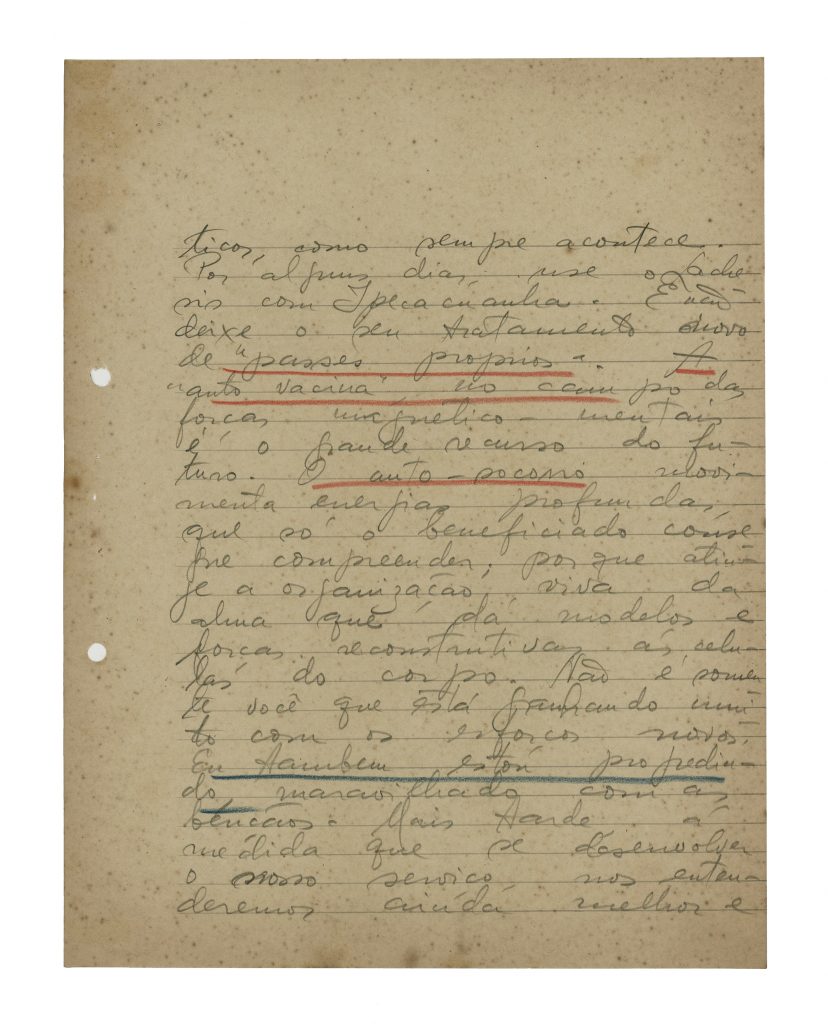 ticos, como sempre acontece.
Por alguns dias, use o Lache-
sis com Ipecacuanha. E não
deixe o seu tratamento novo
de "passes proprios". A
"auto vacina" no campo das
forças magnético-mentais
é o grande recurso do fu-
turo. O auto-socorro movi-
menta energias profundas,
que só o beneficiado conse
gue compreender, porque atin-
ge a organização viva da
alma que dá modelos e
forças reconstrutivas ás celu-
las do corpo. Não é somen
te você que está ganhando mui
to com os esforços novos.
Eu tambem estou progredin-
do, maravilhado com as
bençãos. Mais tarde á
medida que se desenvolver
o nosso serviço, nos enten-
deremos ainda melhor e